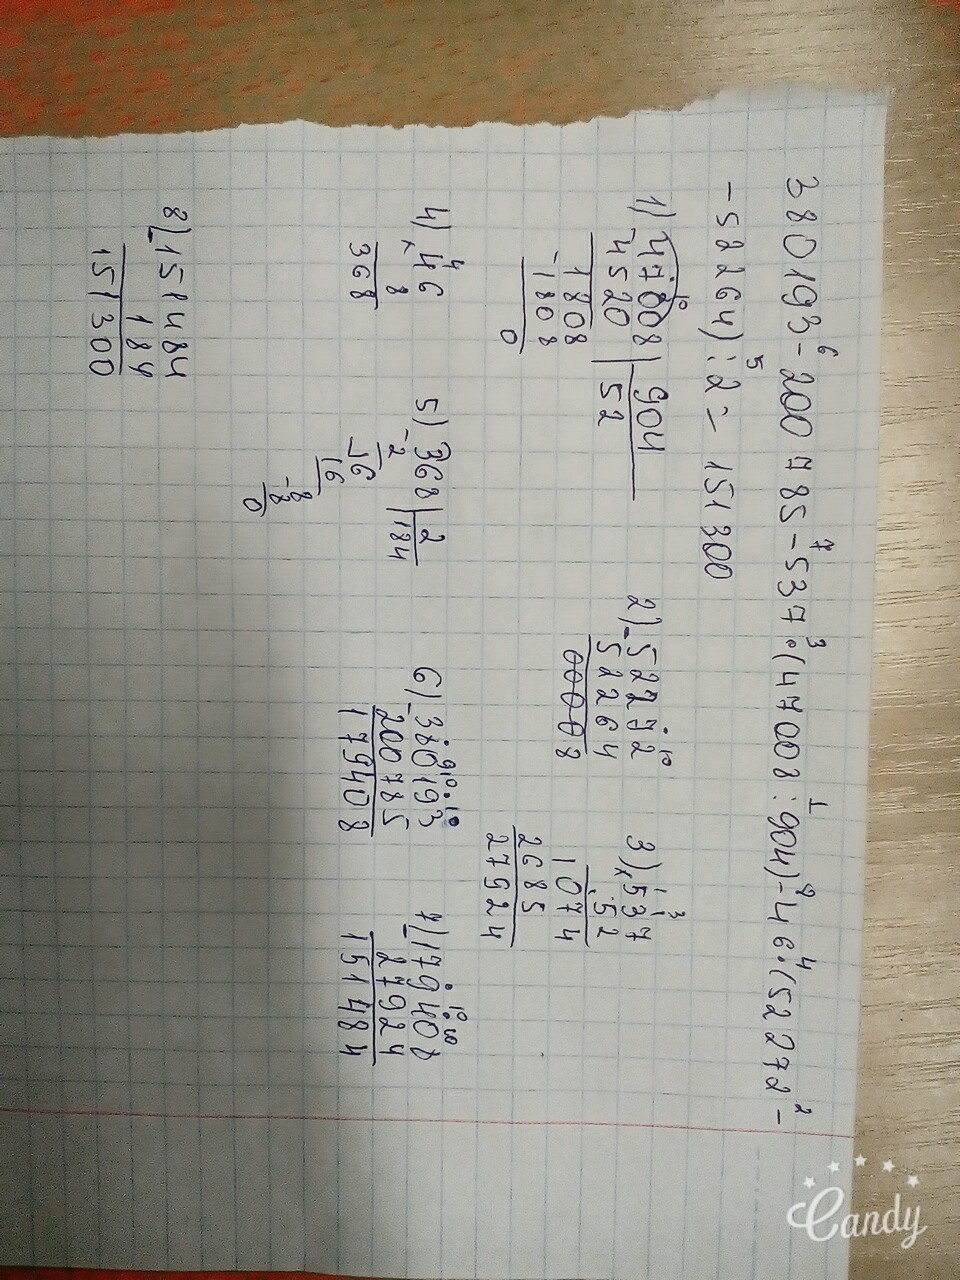 380193 - 200785 - 537 · (47008 : 904) - 46 · (52272 -
- 52264) : 2 = 151300
6 7 3 1 8 4 2
5
1) 47008 | 904
- 4520 | 52
1808
- 1808
0
2) - 52272
52264
00008
3) × 537
52
1074
2685
27924
4) × 46
8
368
5) 368 | 2
- 2 | 184
- 16
16
- 8
8
0
6) - 380193
200785
179408
7) - 179408
27924
151484
8) - 151484
184
151300
Candy